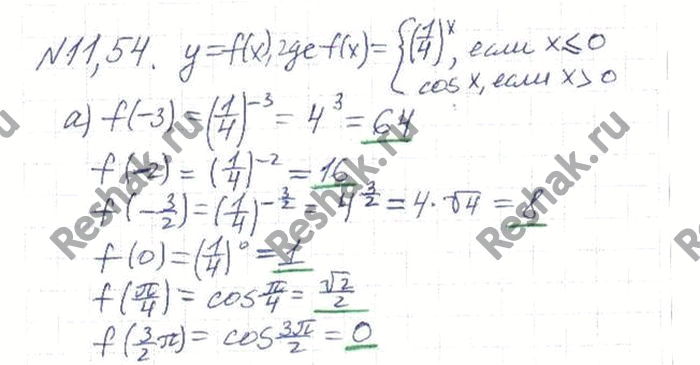 N11,54. y=f(x), где f(x)={(1/4)^x, если x≤0
cos x, если x>0
а) f(-3)=(1/4)^-3=4^3=64
f(-2)=(1/4)^-2=16
f(-3/2)=(1/4)^-3/2=4^3/2=4·√4=8
f(0)=(1/4)^0=1
f(π/4)=cos π/4=√2/2
f(3/2 π)=cos 3π/2=0
Reshak.ru
Reshak.ru
Reshak.ru